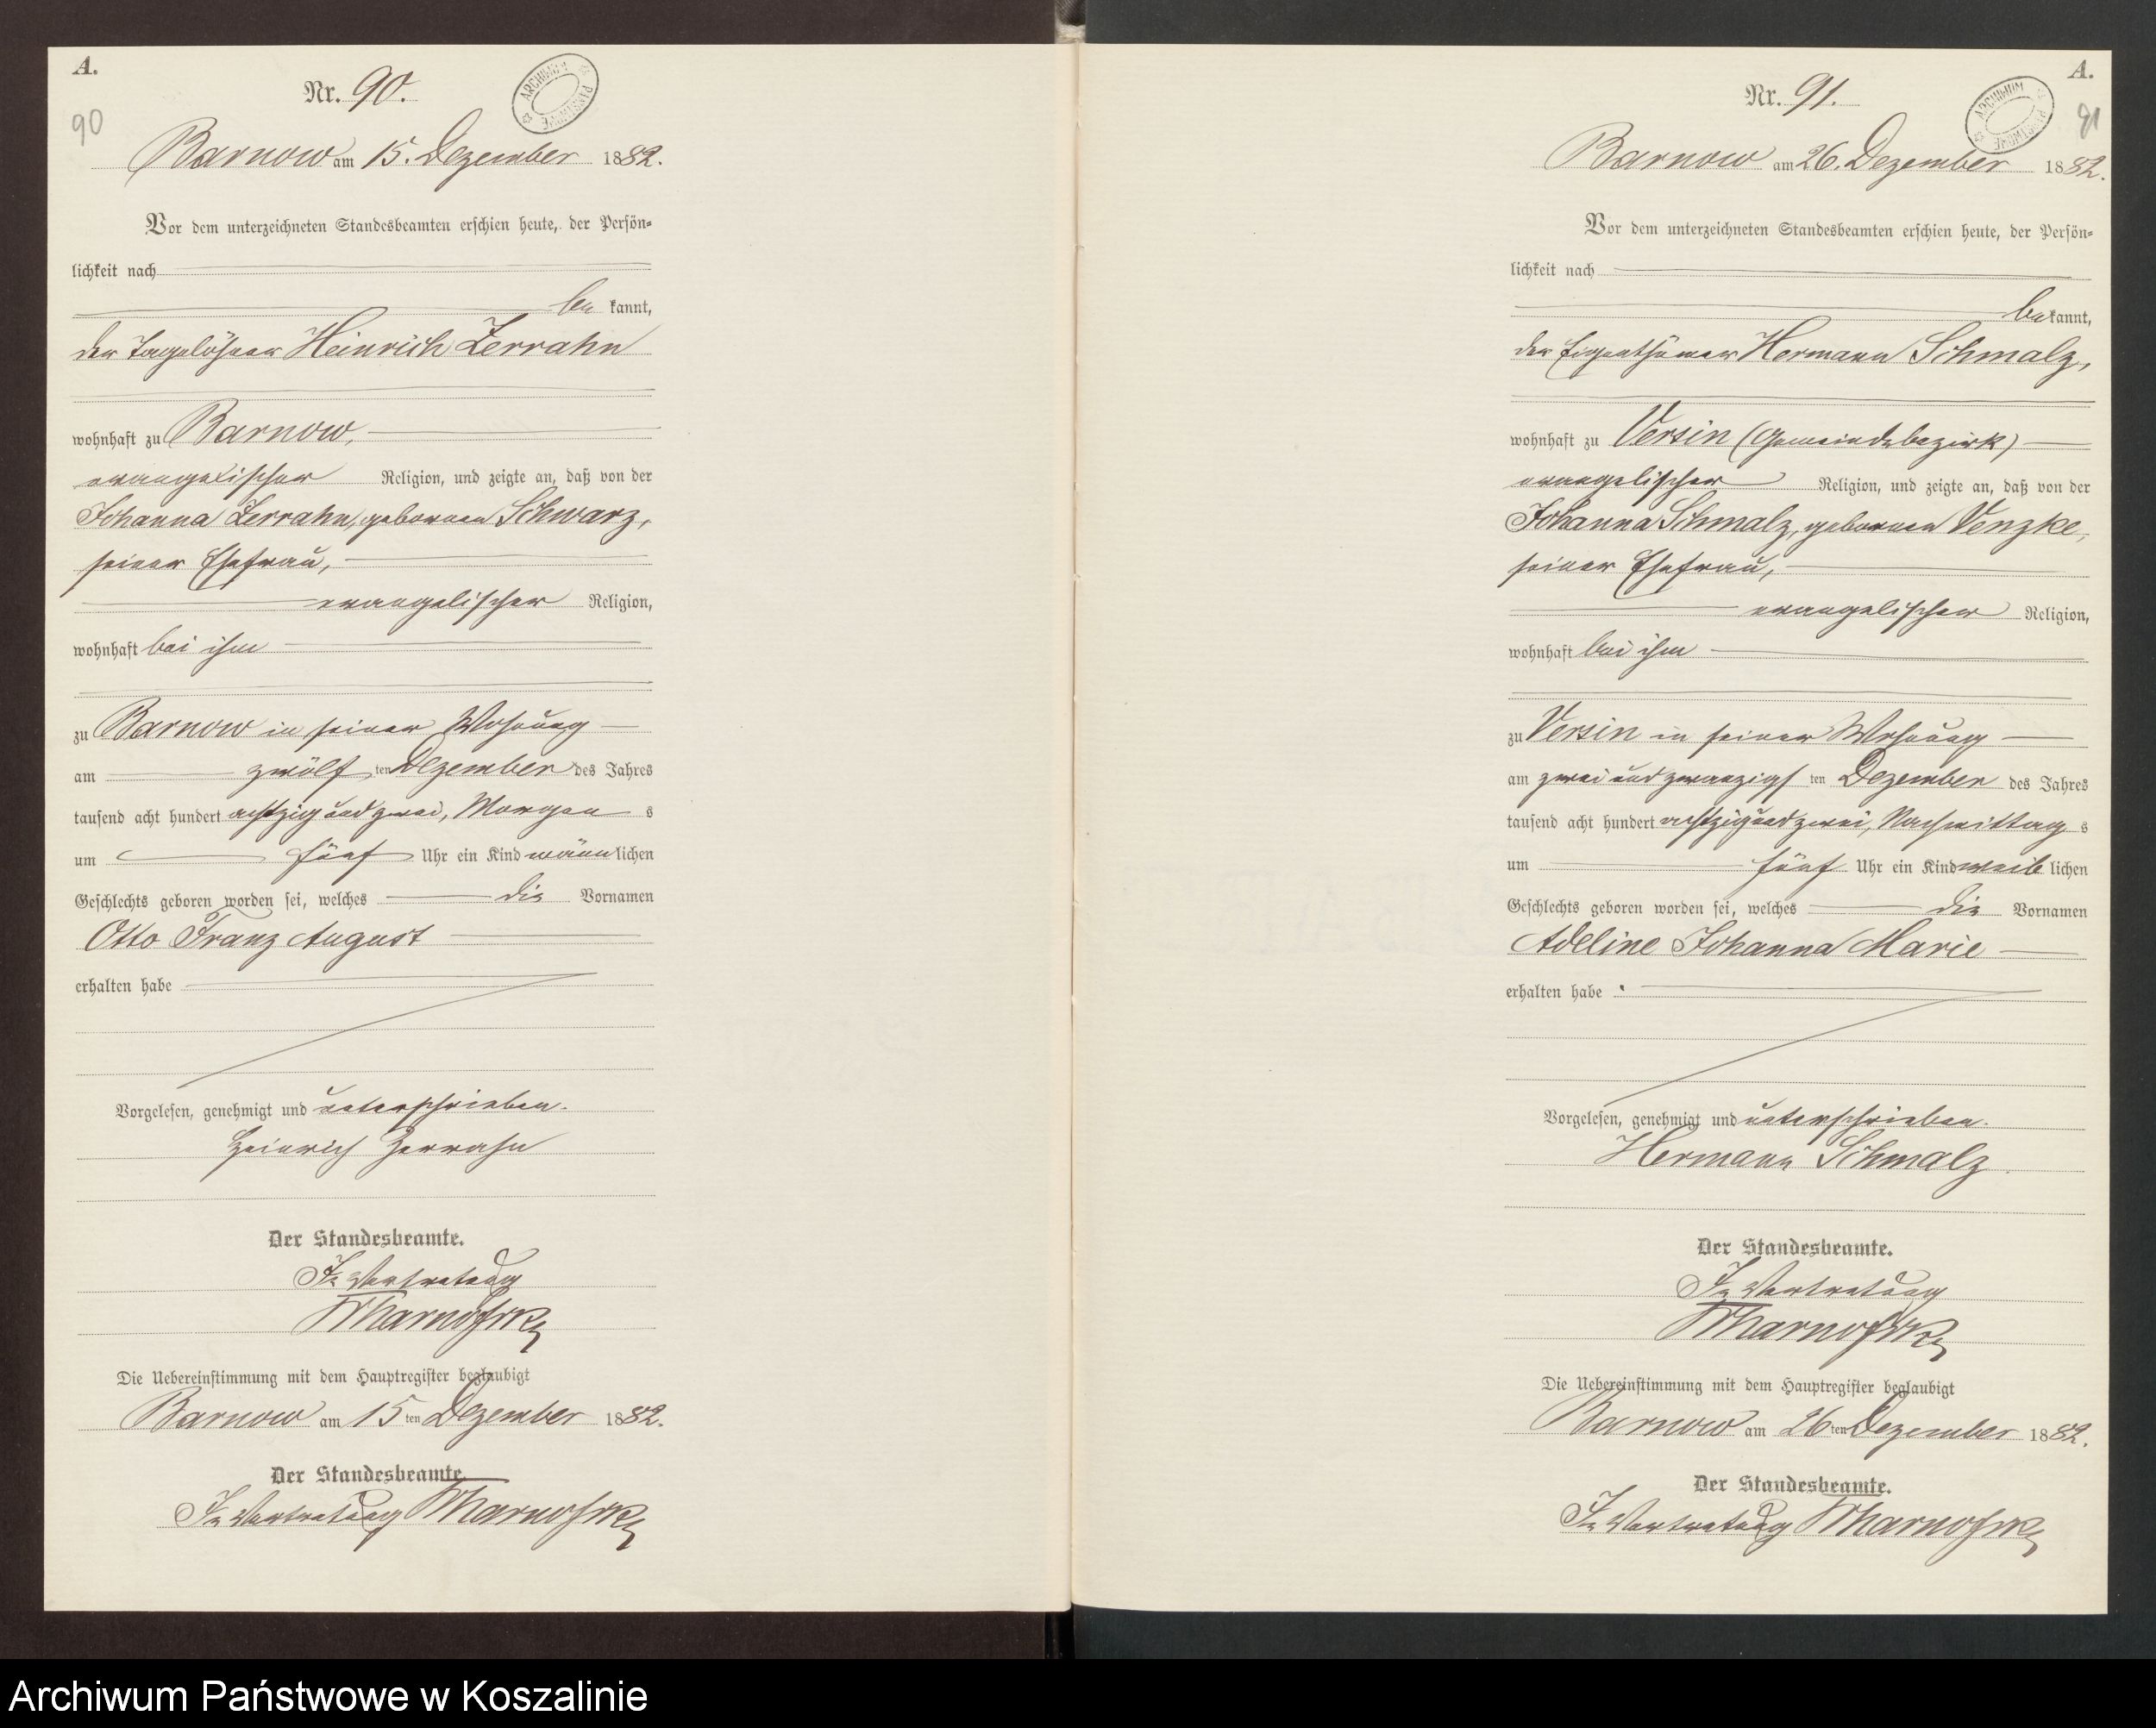 A.
Nr. 90.
ARCHIWUM PAŃSTWOWE
90
Barnow am 15. Dezember 1882.
Vor dem unterzeichneten Standesbeamten erschien heute, der Persön=
lichkeit nach
be kannt,
der Tagelöhner Heinrich Zerrahn
wohnhaft zu Barnow,
evangelischer Religion, und zeigte an, daß von der
Johanna Zerrahn, geborenen Schwarz,
seiner Ehefrau,
evangelischer Religion,
wohnhaft bei ihm
zu Barnow in seiner Wohnung
am zwölf ten Dezember des Jahres
tausend acht hundert achtzig und zwei, Morgen s
um fünf Uhr ein Kind männ lichen
Geschlechts geboren worden sei, welches die Vornamen
Otto Franz August
erhalten habe
Vorgelesen, genehmigt und unterschrieben.
Heinrich Zerrahn
Der Standesbeamte.
In Vertretung
Die Uebereinstimmung mit dem Hauptregister beglaubigt
Barnow am 15 ten Dezember 1882.
Der Standesbeamte.
In Vertretung
A.
Nr. 91.
ARCHIWUM PAŃSTWOWE
91
Barnow am 26. Dezember 1882.
Vor dem unterzeichneten Standesbeamten erschien heute, der Persön=
lichkeit nach
be kannt,
der Eigenthümer Hermann Schmalz,
wohnhaft zu Versin (Gemeindebezirk)
evangelischer Religion, und zeigte an, daß von der
Johanna Schmalz, geborenen Venzke,
seiner Ehefrau,
evangelischer Religion,
wohnhaft bei ihm
zu Versin in seiner Wohnung
am zwei und zwanzigs ten Dezember des Jahres
tausend acht hundert achtzig und zwei, Nachmittag s
um fünf Uhr ein Kind weib lichen
Geschlechts geboren worden sei, welches die Vornamen
Adeline Johanna Marie
erhalten habe
Vorgelesen, genehmigt und unterschrieben.
Hermann Schmalz
Der Standesbeamte.
In Vertretung
Die Uebereinstimmung mit dem Hauptregister beglaubigt
Barnow am 26 ten Dezember 1882.
Der Standesbeamte.
In Vertretung
Archiwum Państwowe w Koszalinie